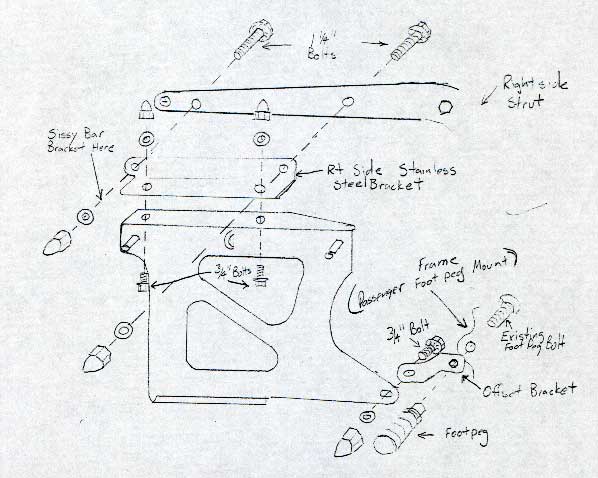 1 1/4"
Bolts
Right side
Strut
Sissy Bar
Bracket Here
Rt Side Stainless
Steel Bracket
3/4" Bolts
Frame
(Passenger Foot Peg Mount)
3/4" Bolt
Existing
Foot Peg Bolt
Offset Bracket
Footpeg